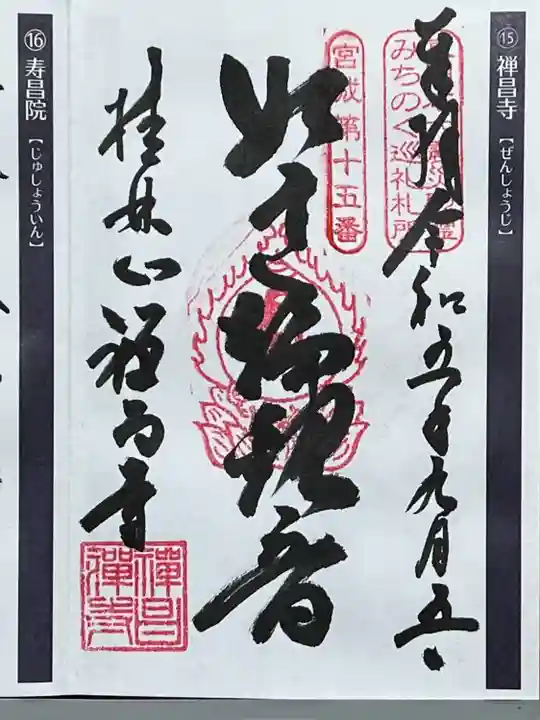 ⑮ 禅昌寺【ぜんしょうじ】
奉拝 令和五年九月五日
みちのく巡礼札所
宮城第十五番
如意輪観音
桂林山 禅昌寺
禪昌
禪寺
⑯ 寿昌院【じゅしょういん】